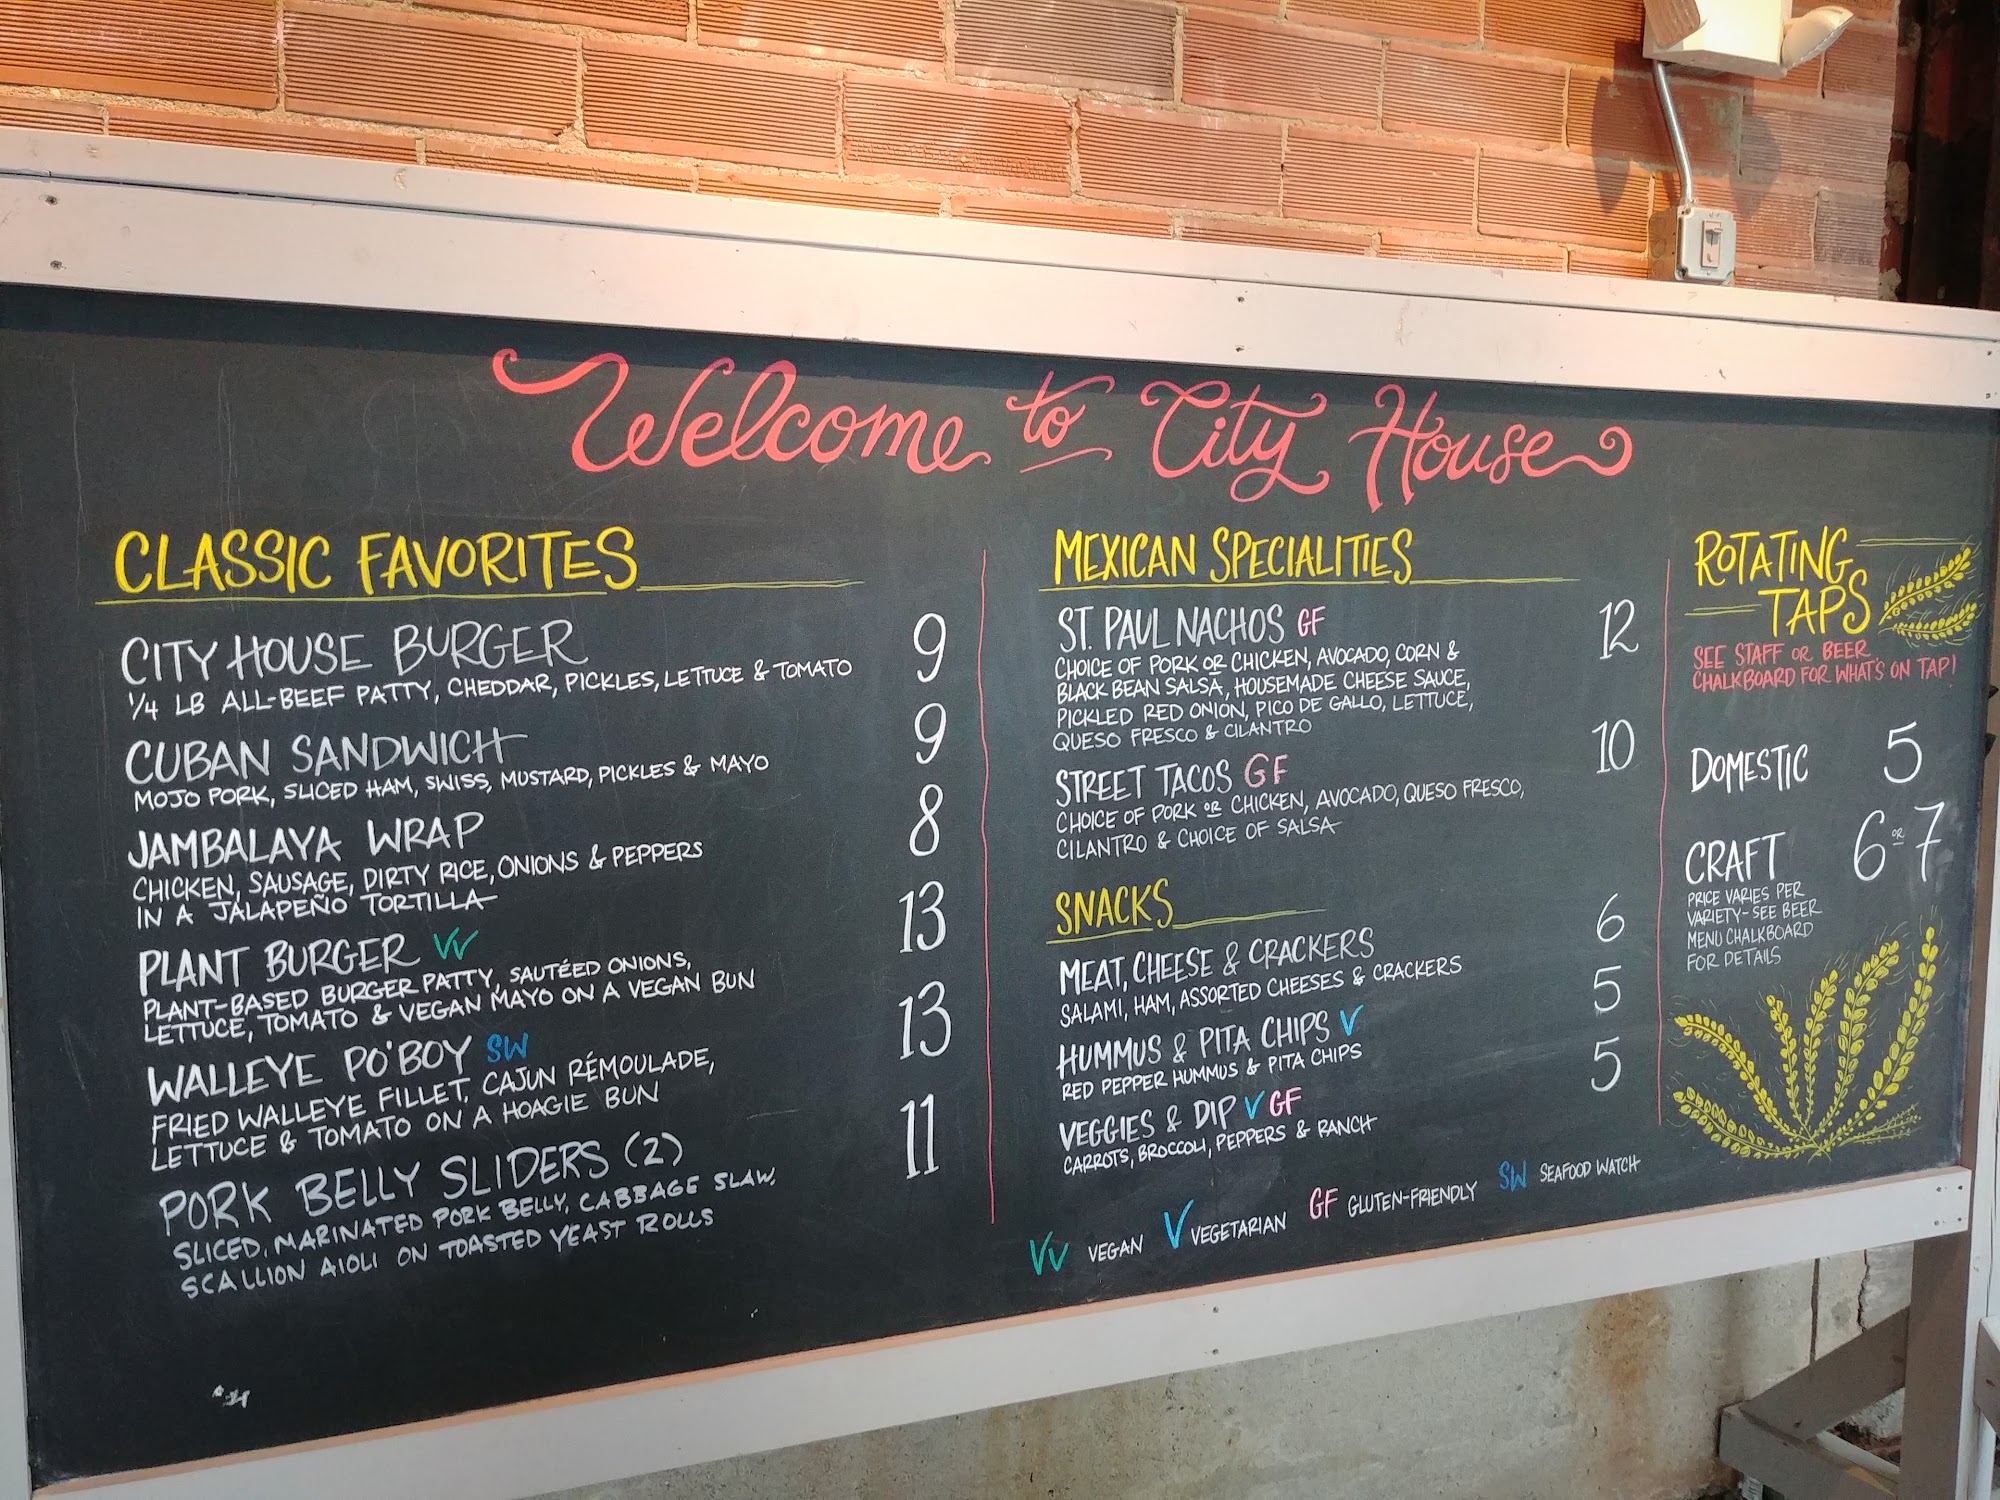 Welcome to City House
CLASSIC FAVORITES
CITY HOUSE BURGER 9
1/4 LB ALL-BEEF PATTY, CHEDDAR, PICKLES, LETTUCE & TOMATO
CUBAN SANDWICH 9
MOJO PORK, SLICED HAM, SWISS, MUSTARD, PICKLES & MAYO
JAMBALAYA WRAP 8
CHICKEN, SAUSAGE, DIRTY RICE, ONIONS & PEPPERS
IN A JALAPEÑO TORTILLA
PLANT BURGER VV 13
PLANT-BASED BURGER PATTY, SAUTÉED ONIONS,
LETTUCE, TOMATO & VEGAN MAYO ON A VEGAN BUN
WALLEYE PO'BOY SW 13
FRIED WALLEYE FILLET, CAJUN RÉMOULADE,
LETTUCE & TOMATO ON A HOAGIE BUN
PORK BELLY SLIDERS (2) 11
SLICED, MARINATED PORK BELLY, CABBAGE SLAW,
SCALLION AIOLI ON TOASTED YEAST ROLLS
MEXICAN SPECIALITIES
ST. PAUL NACHOS GF 12
CHOICE OF PORK OR CHICKEN, AVOCADO, CORN &
BLACK BEAN SALSA, HOUSEMADE CHEESE SAUCE,
PICKLED RED ONION, PICO DE GALLO, LETTUCE,
QUESO FRESCO & CILANTRO
STREET TACOS GF 10
CHOICE OF PORK OR CHICKEN, AVOCADO, QUESO FRESCO,
CILANTRO & CHOICE OF SALSA
SNACKS
MEAT, CHEESE & CRACKERS 6
SALAMI, HAM, ASSORTED CHEESES & CRACKERS
HUMMUS & PITA CHIPS V 5
RED PEPPER HUMMUS & PITA CHIPS
VEGGIES & DIP V GF 5
CARROTS, BROCCOLI, PEPPERS & RANCH
VV VEGAN V VEGETARIAN GF GLUTEN-FRIENDLY SW SEAFOOD WATCH
ROTATING
TAPS
SEE STAFF OR BEER
CHALKBOARD FOR WHAT'S ON TAP!
DOMESTIC 5
CRAFT 6 OR 7
PRICE VARIES PER
VARIETY - SEE BEER
MENU CHALKBOARD
FOR DETAILS